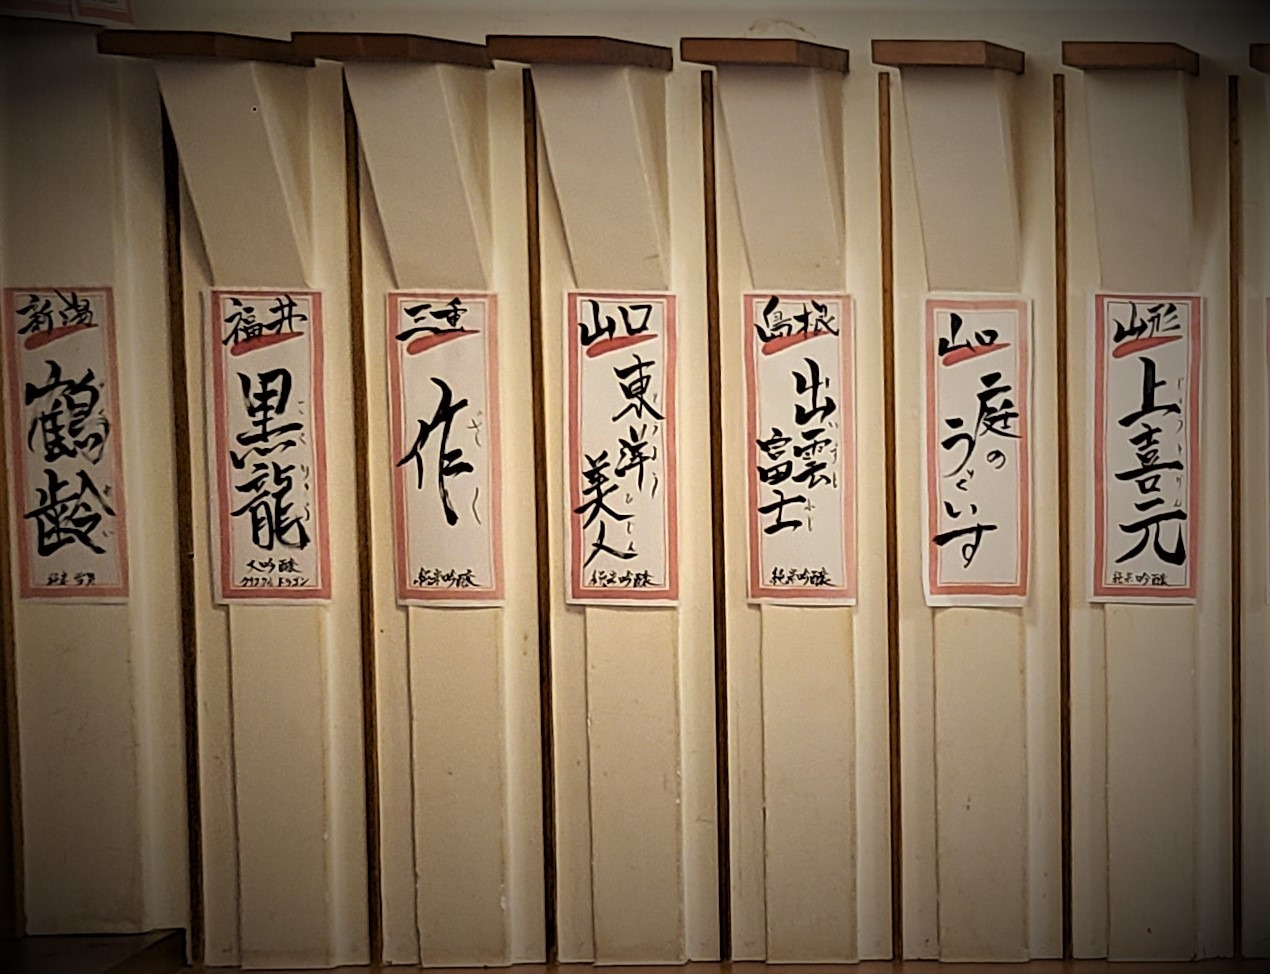 新潟
鶴齢
純米
福井
黒龍
こくりゅう
大吟醸
クリスタルドラゴン
三重
作
ざく
純米吟醸
山口
東洋
美人
とうよう
びじん
純米吟醸
島根
出雲
富士
いずも
ふじ
純米吟醸
山口
庭の
うぐいす
山形
上喜元
じょうきげん
純米吟醸